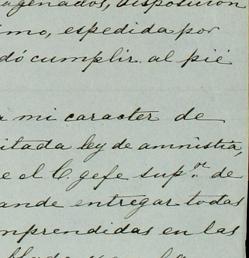 agenados, disposicion
imo, espedida por
dó cumplir al pié
a mi caracter de
itada ley de amnistia,
e el C. gefe sup.or de
ande entregar todas
mprendidas en las